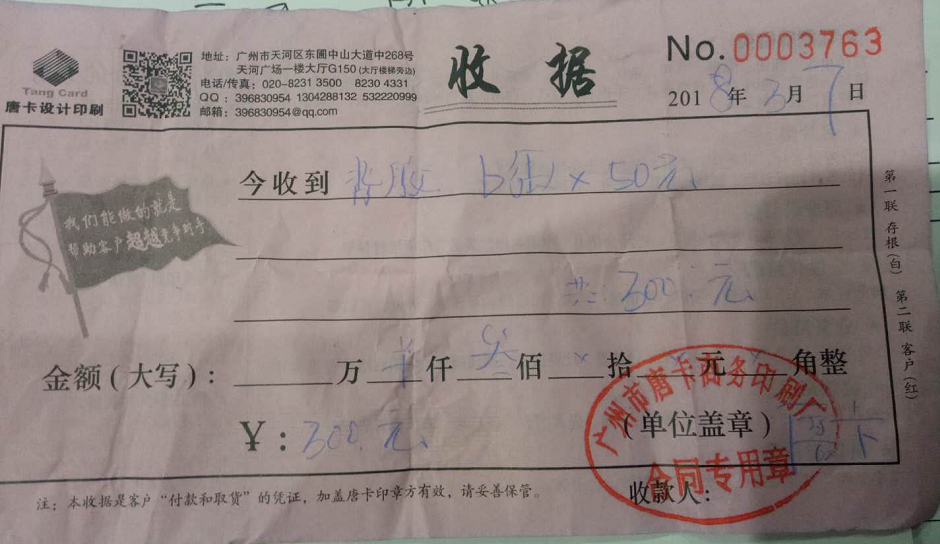 Tang Card
唐卡设计印刷
地址：广州市天河区东圃中山大道中268号
天河广场一楼大厅G150（大厅楼梯旁边）
电话/传真：020-8231 3500 8230 4331
QQ：396830954 1304288132 532220999
邮箱：396830954@qq.com
收据
No.0003763
2018年3月7日
我们能做的就是
帮助客户超越竞争对手
今收到 背胶 6组×50元
共：300.元
金额（大写）：万仟叁佰×拾元角整
¥：300.元
（单位盖章）
收款人：
广州市唐卡商务印刷厂
合同专用章
注：本收据是客户“付款和取货”的凭证，加盖唐卡印章方有效，请妥善保管。
第一联 存根（白） 第二联 客户（红）